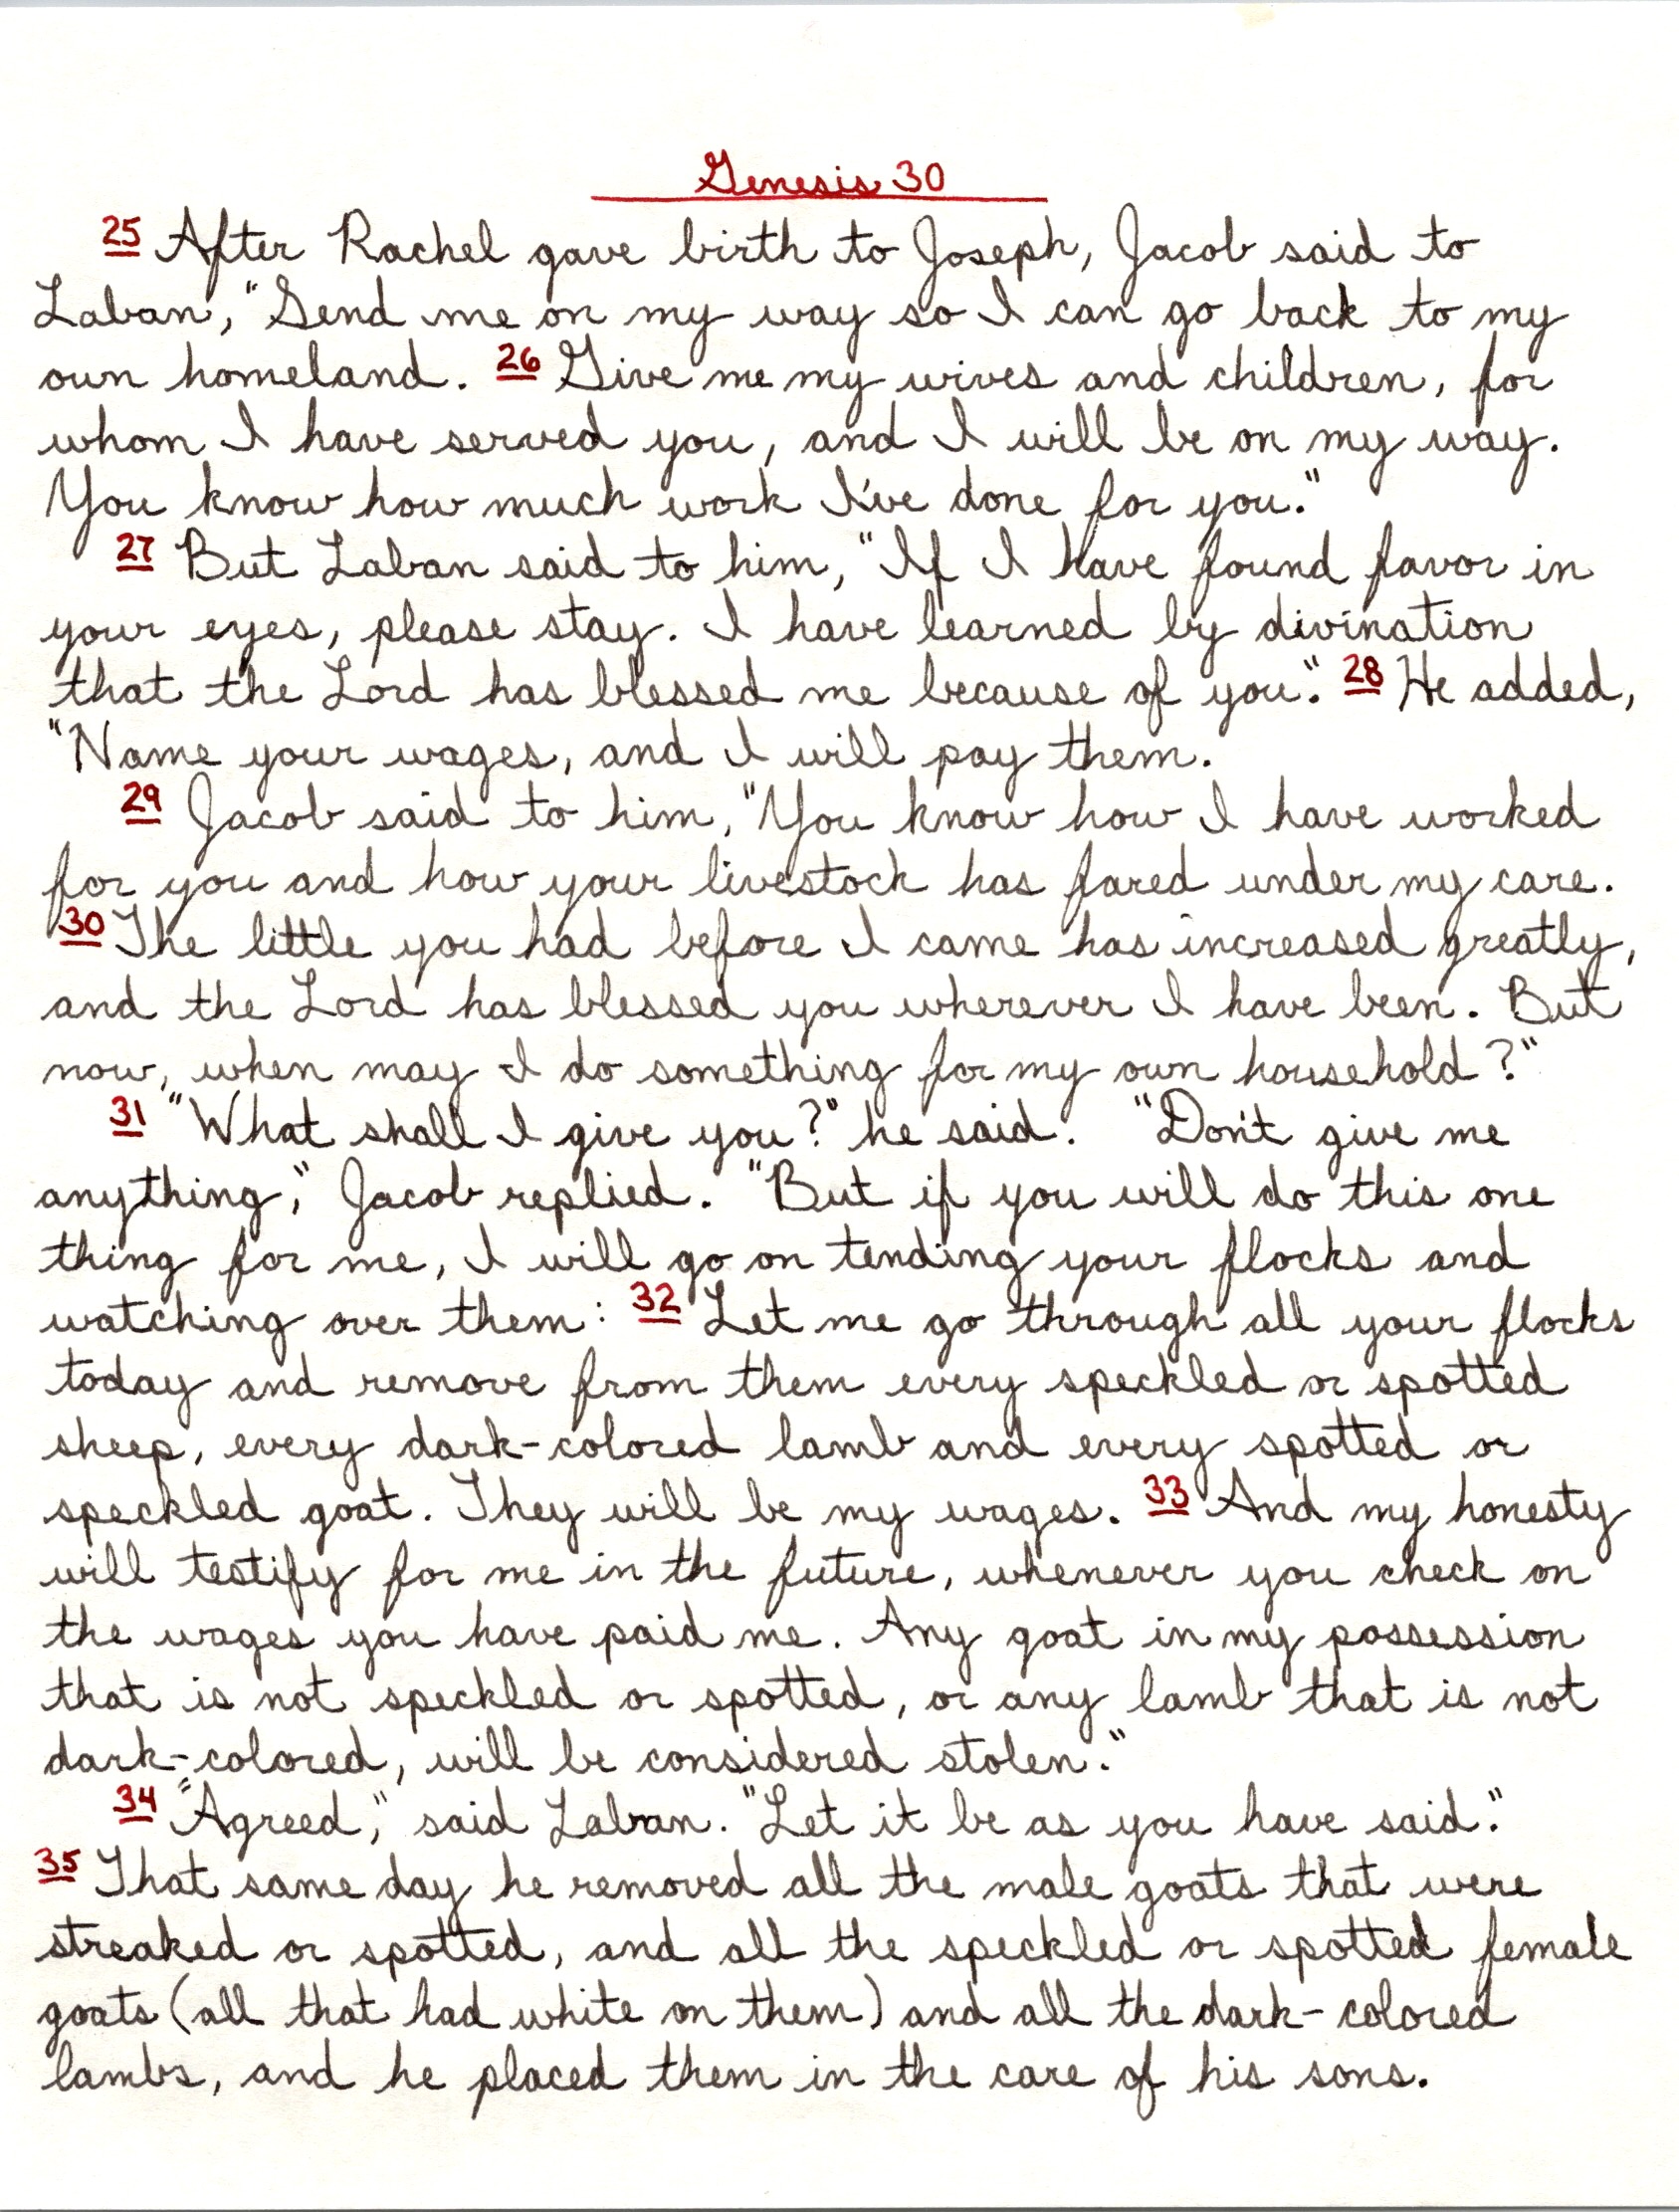 Genesis 30
25 After Rachel gave birth to Joseph, Jacob said to
Laban, "Send me on my way so I can go back to my
own homeland. 26 Give me my wives and children, for
whom I have served you, and I will be on my way.
You know how much work I've done for you."
27 But Laban said to him, "If I have found favor in
your eyes, please stay. I have learned by divination
that the Lord has blessed me because of you." 28 He added,
"Name your wages, and I will pay them.
29 Jacob said to him, "You know how I have worked
for you and how your livestock has fared under my care.
30 The little you had before I came has increased greatly,
and the Lord has blessed you wherever I have been. But
now, when may I do something for my own household?"
31 "What shall I give you?" he said. "Don't give me
anything," Jacob replied. "But if you will do this one
thing for me, I will go on tending your flocks and
watching over them: 32 Let me go through all your flocks
today and remove from them every speckled or spotted
sheep, every dark-colored lamb and every spotted or
speckled goat. They will be my wages. 33 And my honesty
will testify for me in the future, whenever you check on
the wages you have paid me. Any goat in my possession
that is not speckled or spotted, or any lamb that is not
dark-colored, will be considered stolen."
34 "Agreed," said Laban. "Let it be as you have said."
35 That same day he removed all the male goats that were
streaked or spotted, and all the speckled or spotted female
goats (all that had white on them) and all the dark-colored
lambs, and he placed them in the care of his sons.